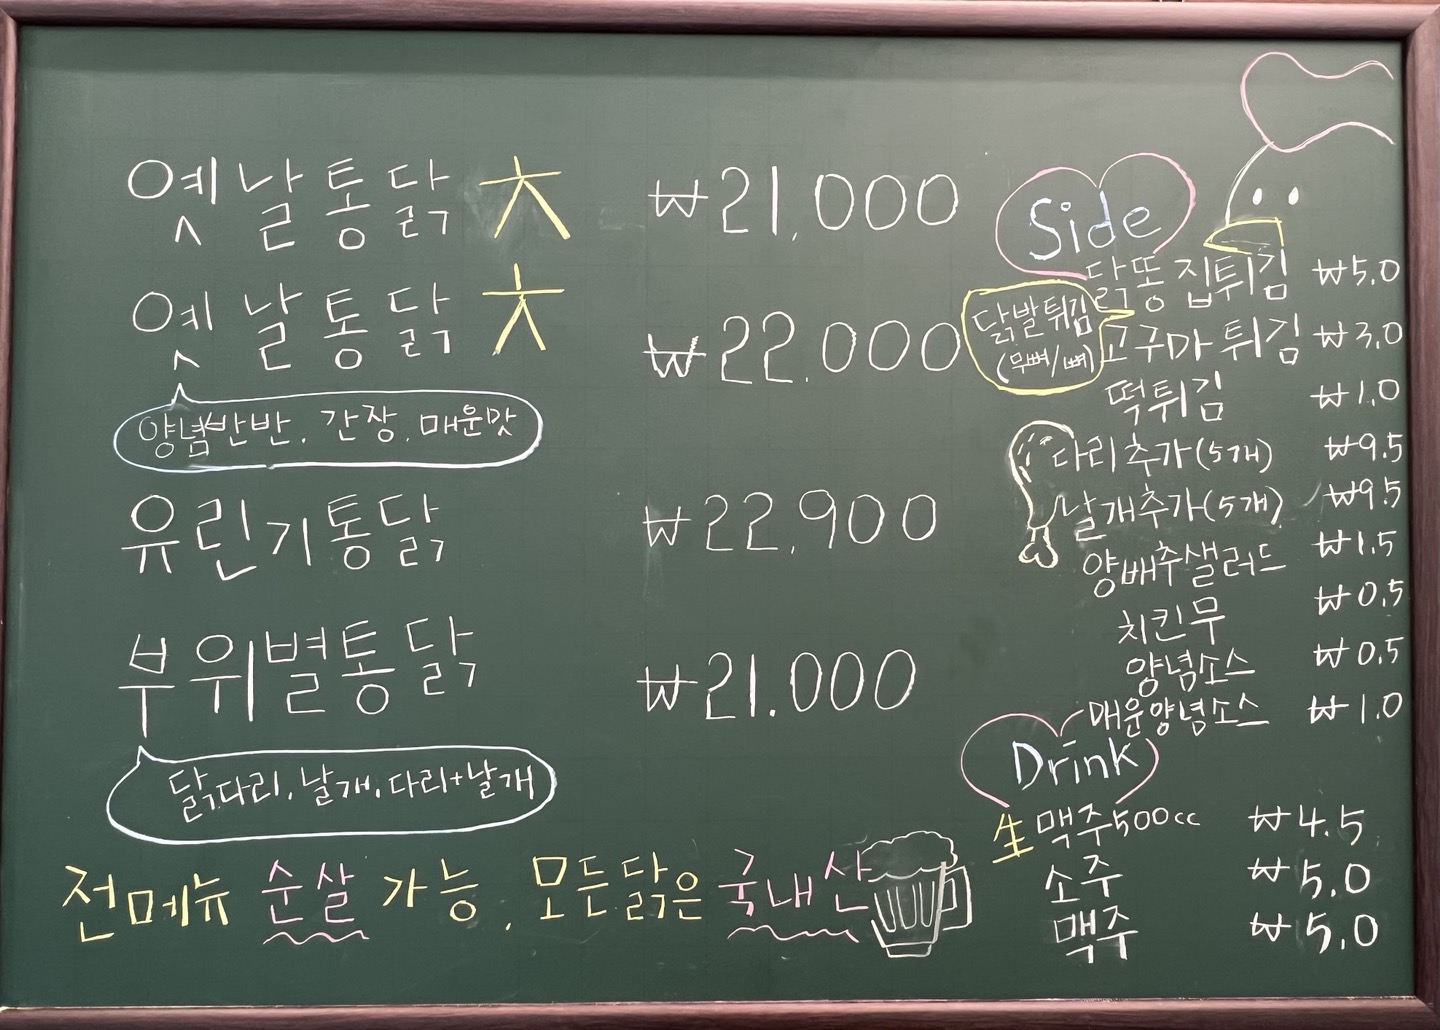 옛날통닭 大 ₩21,000
옛날통닭 大 ₩22,000
양념반반, 간장, 매운맛
유린기통닭 ₩22,900
부위별통닭 ₩21,000
닭다리, 날개, 다리+날개
전메뉴 순살 가능, 모든닭은 국내산
Side
닭똥집튀김 ₩5.0
닭발튀김
(무뼈/뼈)
고구마튀김 ₩3.0
떡튀김 ₩1.0
다리추가(5개) ₩9.5
날개추가(5개) ₩9.5
양배추샐러드 ₩1.5
치킨무 ₩0.5
양념소스 ₩0.5
매운양념소스 ₩1.0
Drink
生맥주500cc ₩4.5
소주 ₩5.0
맥주 ₩5.0